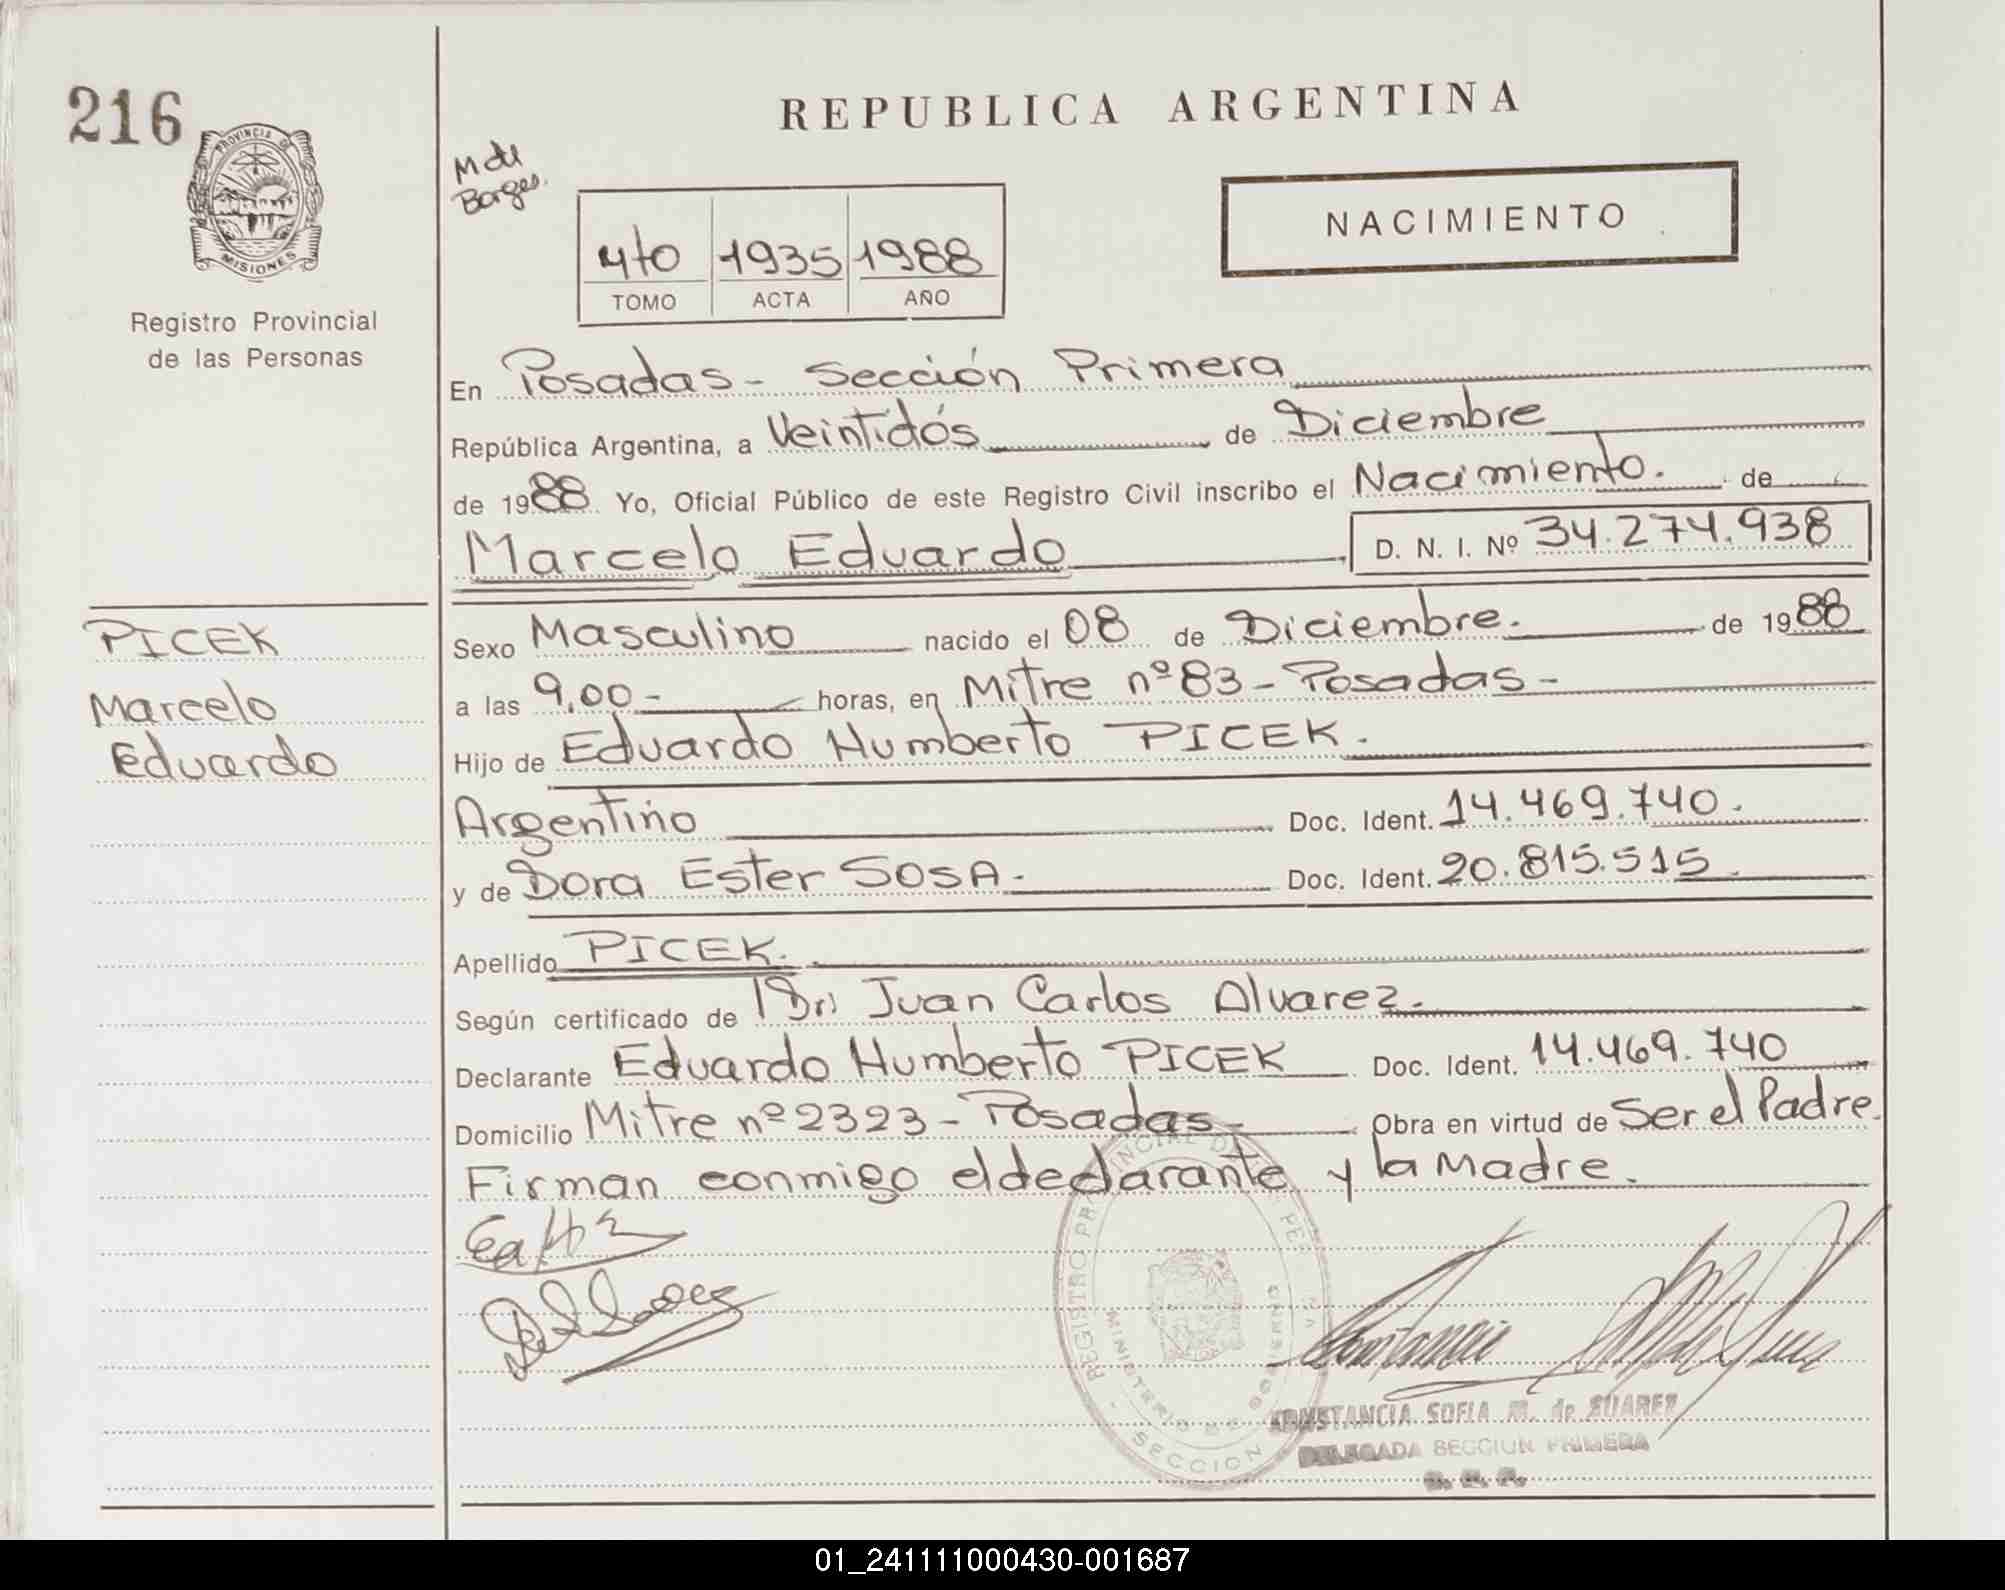 216
PROVINCIA DE
MISIONES
Registro Provincial
de las Personas
PICEK
Marcelo
Eduardo
REPUBLICA ARGENTINA
Borges.
NACIMIENTO
4to 1935 1988
TOMO ACTA AÑO
En Posadas - Sección Primera
República Argentina, a Veintidós de Diciembre
de 1988 Yo, Oficial Público de este Registro Civil inscribo el Nacimiento. de
Marcelo Eduardo D. N. I. Nº 34.274.938
Sexo Masculino nacido el 08 de Diciembre. de 1988
a las 9,00 - horas, en Mitre nº 83 - Posadas -
Hijo de Eduardo Humberto PICEK.
Argentino Doc. Ident. 14.469.740.
y de Dora Ester SOSA. Doc. Ident. 20.815.515
Apellido PICEK.
Según certificado de Dr. Juan Carlos Alvarez.
Declarante Eduardo Humberto PICEK Doc. Ident. 14.469.740
Domicilio Mitre nº 2323 - Posadas - Obra en virtud de Ser el Padre.
Firman conmigo el declarante y la Madre.
REGISTRO PROVINCIAL DE
MINISTERIO DE GOBIERNO
SECCION
CONSTANCIA SOFIA M. de SUAREZ
DELEGADA SECCION PRIMERA
01_241111000430-001687